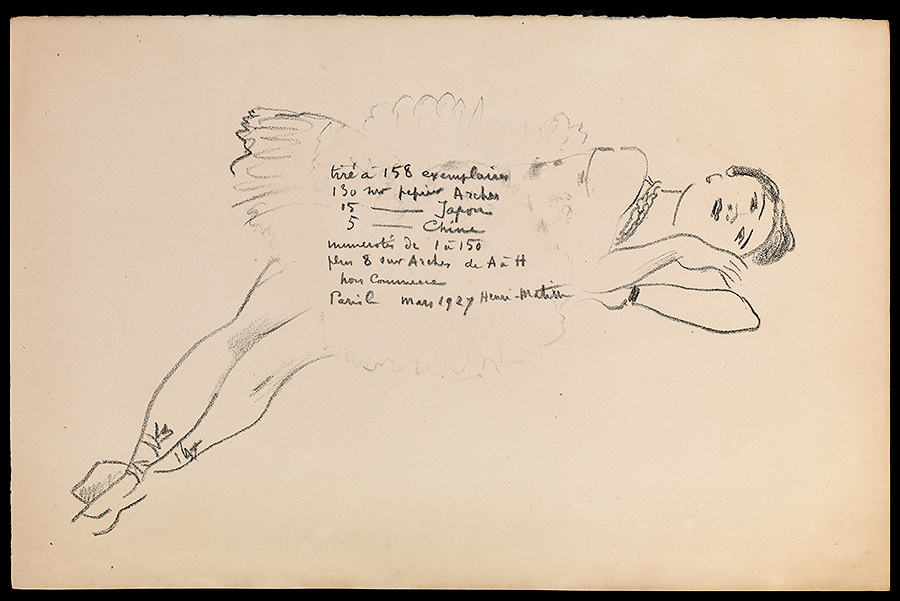 tiré à 158 exemplaires
130 sur papier Arches
15 —— Japon
5 —— Chine
numérotés de 1 à 150
plus 8 sur Arches de A à H
hors Commerce
Paris le mars 1927 Henri-Matisse